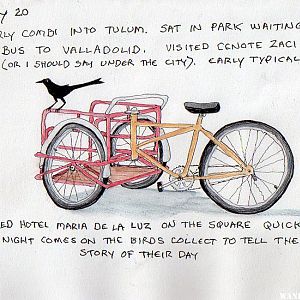 Y 20
RLY COMBI INTO TULUM. SAT IN PARK WAITING
BUS TO VALLADOLID. VISITED CENOTE ZACI
(OR I SHOULD SAY UNDER THE CITY). EARLY TYPICAL
ED HOTEL MARIA DE LA LUZ ON THE SQUARE QUICK
NIGHT COMES ON THE BIRDS COLLECT TO TELL THE
STORY OF THEIR DAY